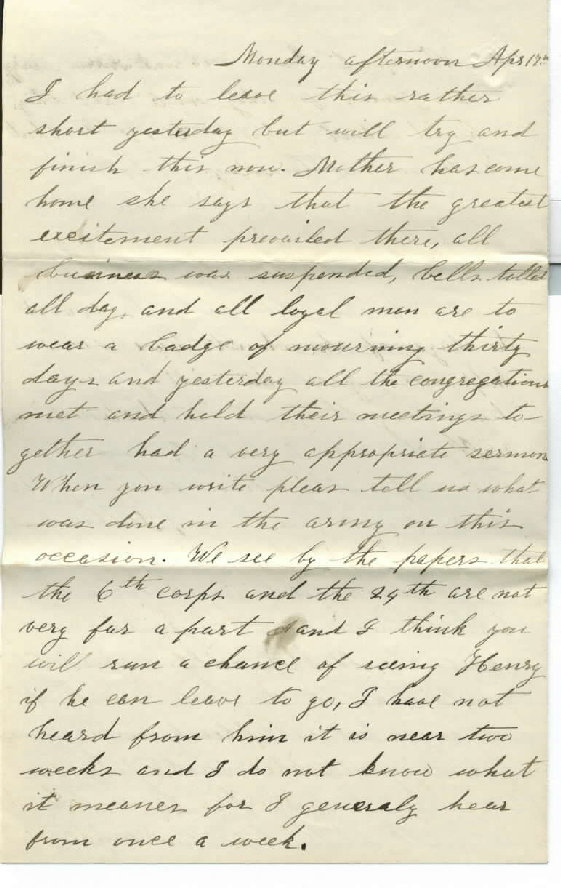 Monday afternoon Apr 17th
I had to leave this rather
short yesterday but will try and
finish this now. Mother has come
home she says that the greatest
exeitement prevailed there, all
business was suspended, bells tolled
all day, and all loyal men are to
wear a badge of mourning thirty
days and yesterday all the congregations
met and held their meetings to-
gether had a very appropriate sermon
When you write pleas tell us what
was done in the army on this
occasion. We see by the papers that
the 6th corps and the 24th are not
very far a part and I think you
will run a chance of seeing Henry
if he can leave to go, I have not
heard from him it is near two
weeks and I do not know what
it meanes for I generaly hear
from once a week.